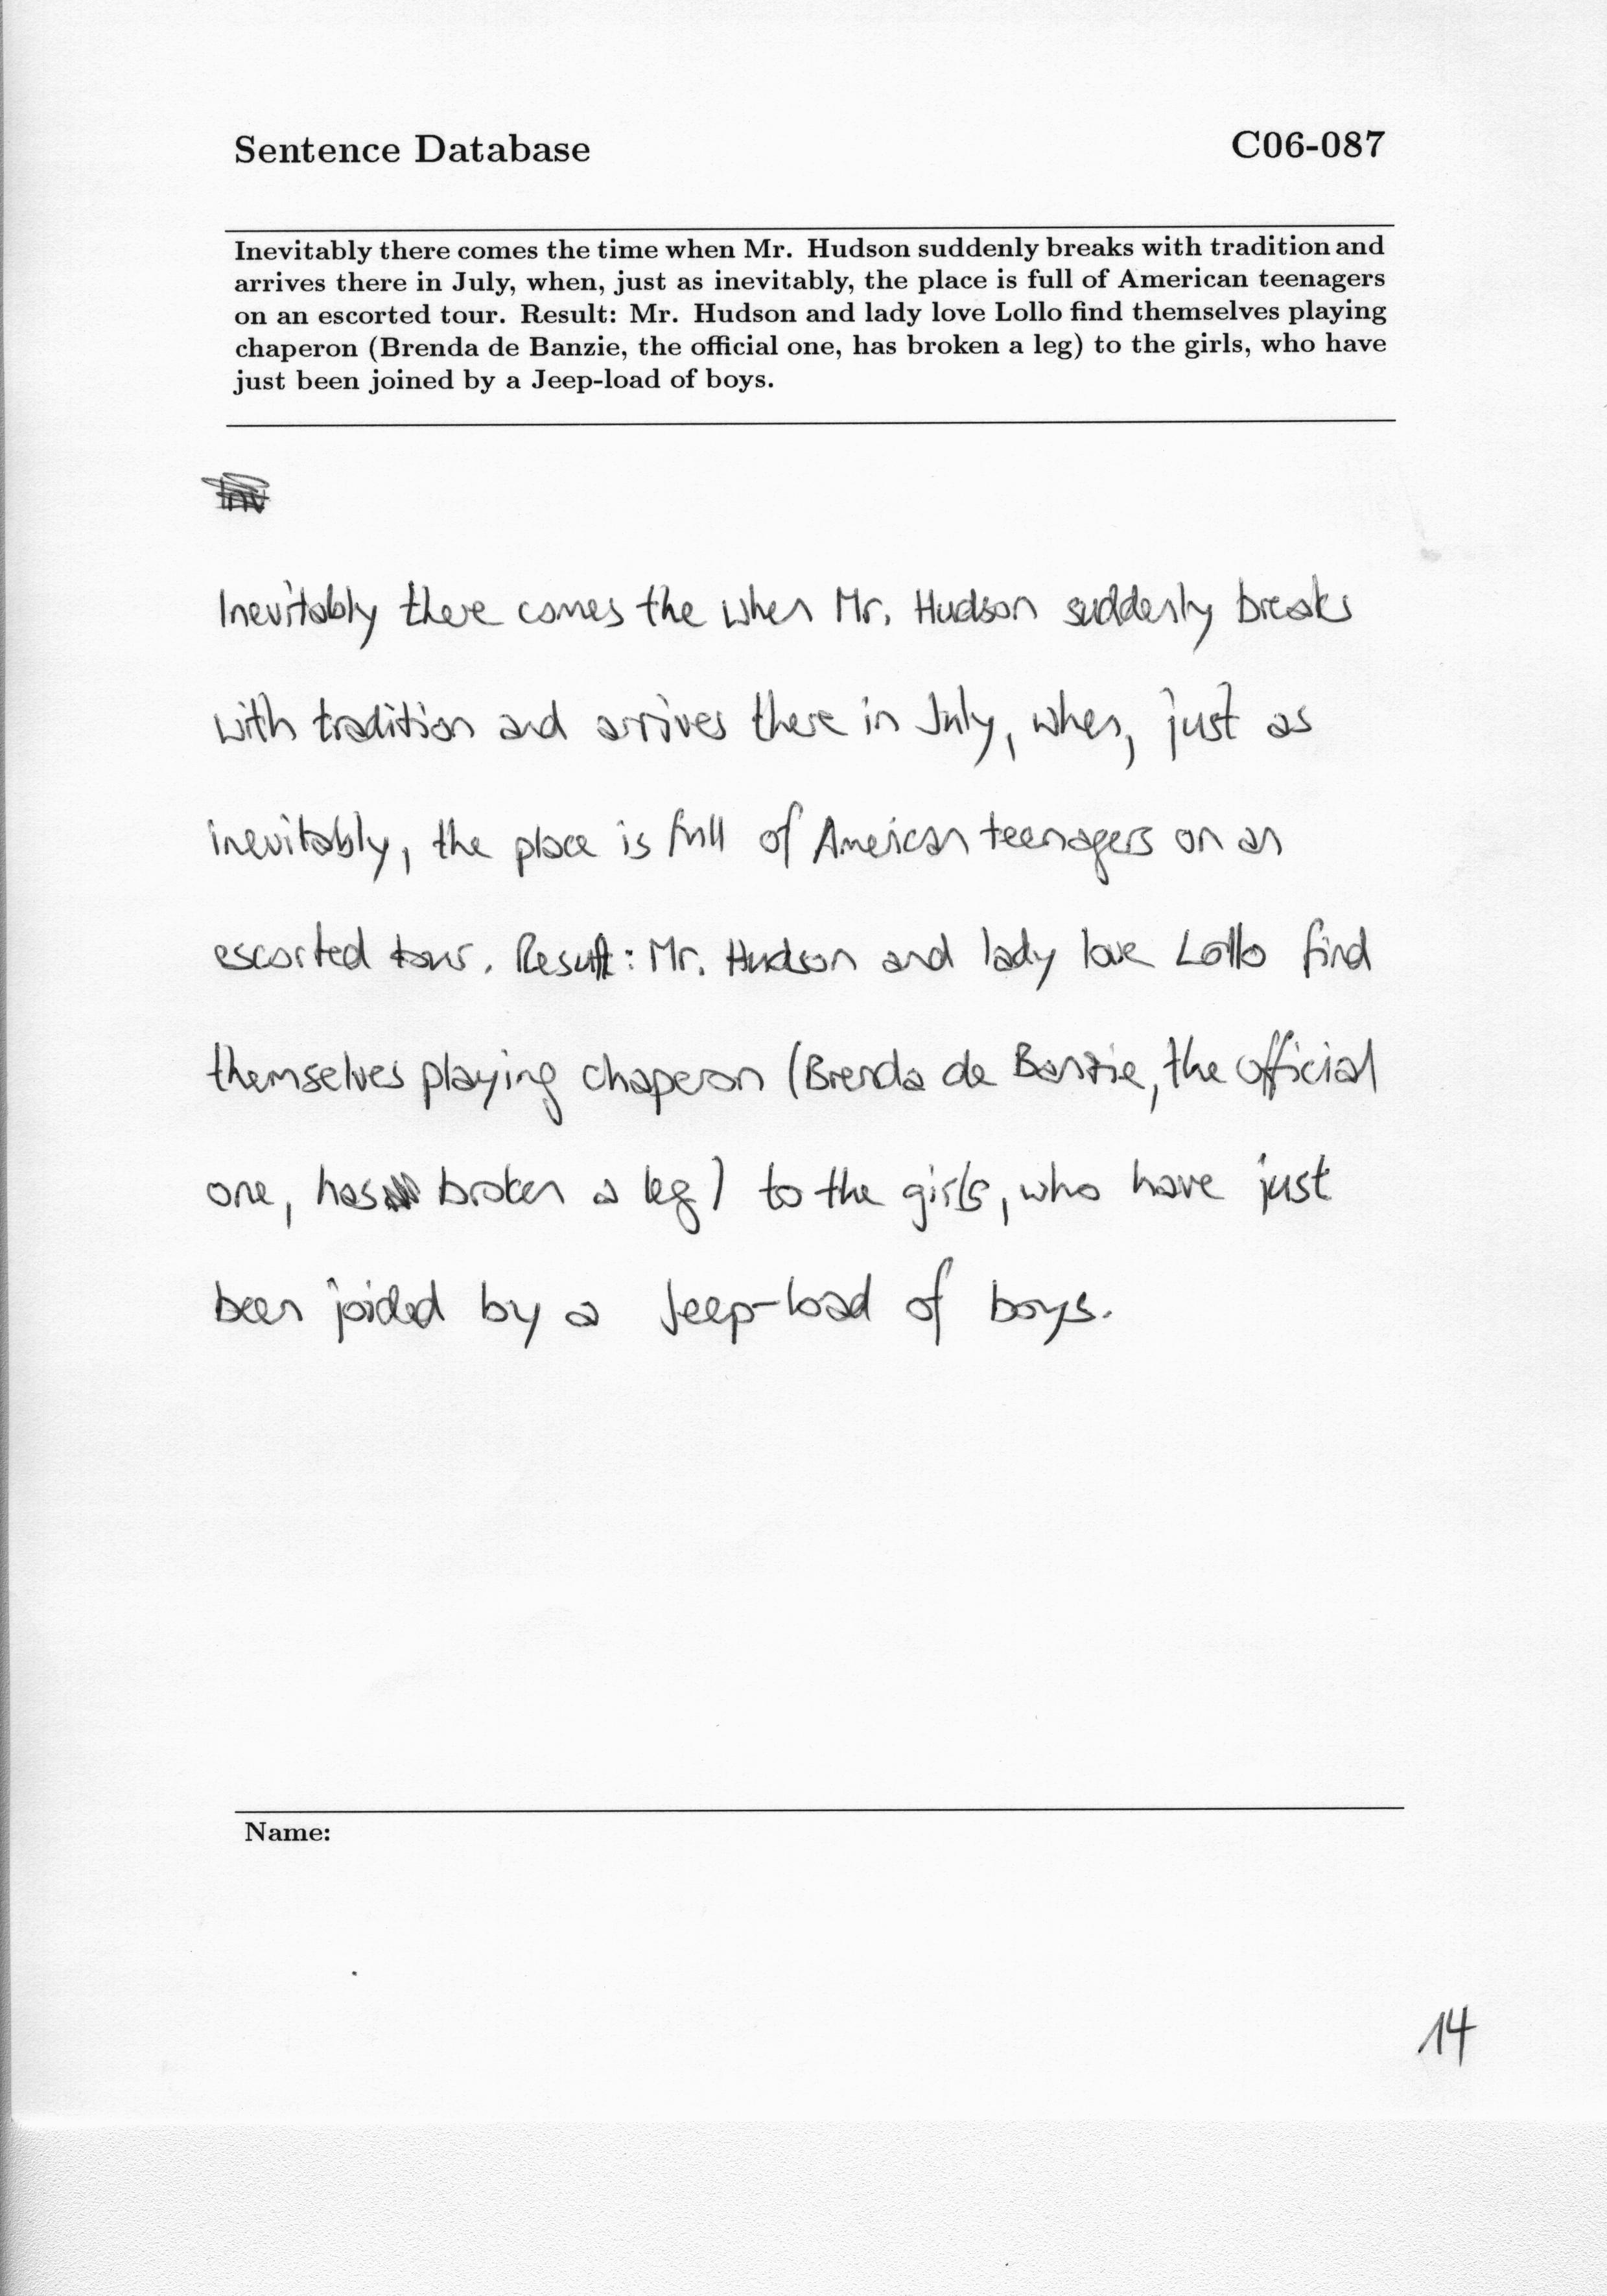 Sentence Database C06-087
Inevitably there comes the time when Mr. Hudson suddenly breaks with tradition and
arrives there in July, when, just as inevitably, the place is full of American teenagers
on an escorted tour. Result: Mr. Hudson and lady love Lollo find themselves playing
chaperon (Brenda de Banzie, the official one, has broken a leg) to the girls, who have
just been joined by a Jeep-load of boys.
Inevitably there comes the when Mr. Hudson suddenly breaks
with tradition and arrives there in July, when, just as
inevitably, the place is full of American teenagers on an
escorted tour. Result: Mr. Hudson and lady love Lollo find
themselves playing chaperon (Brenda de Banzie, the official
one, has broken a leg) to the girls, who have just
been joided by a Jeep-load of boys.
Name:
14